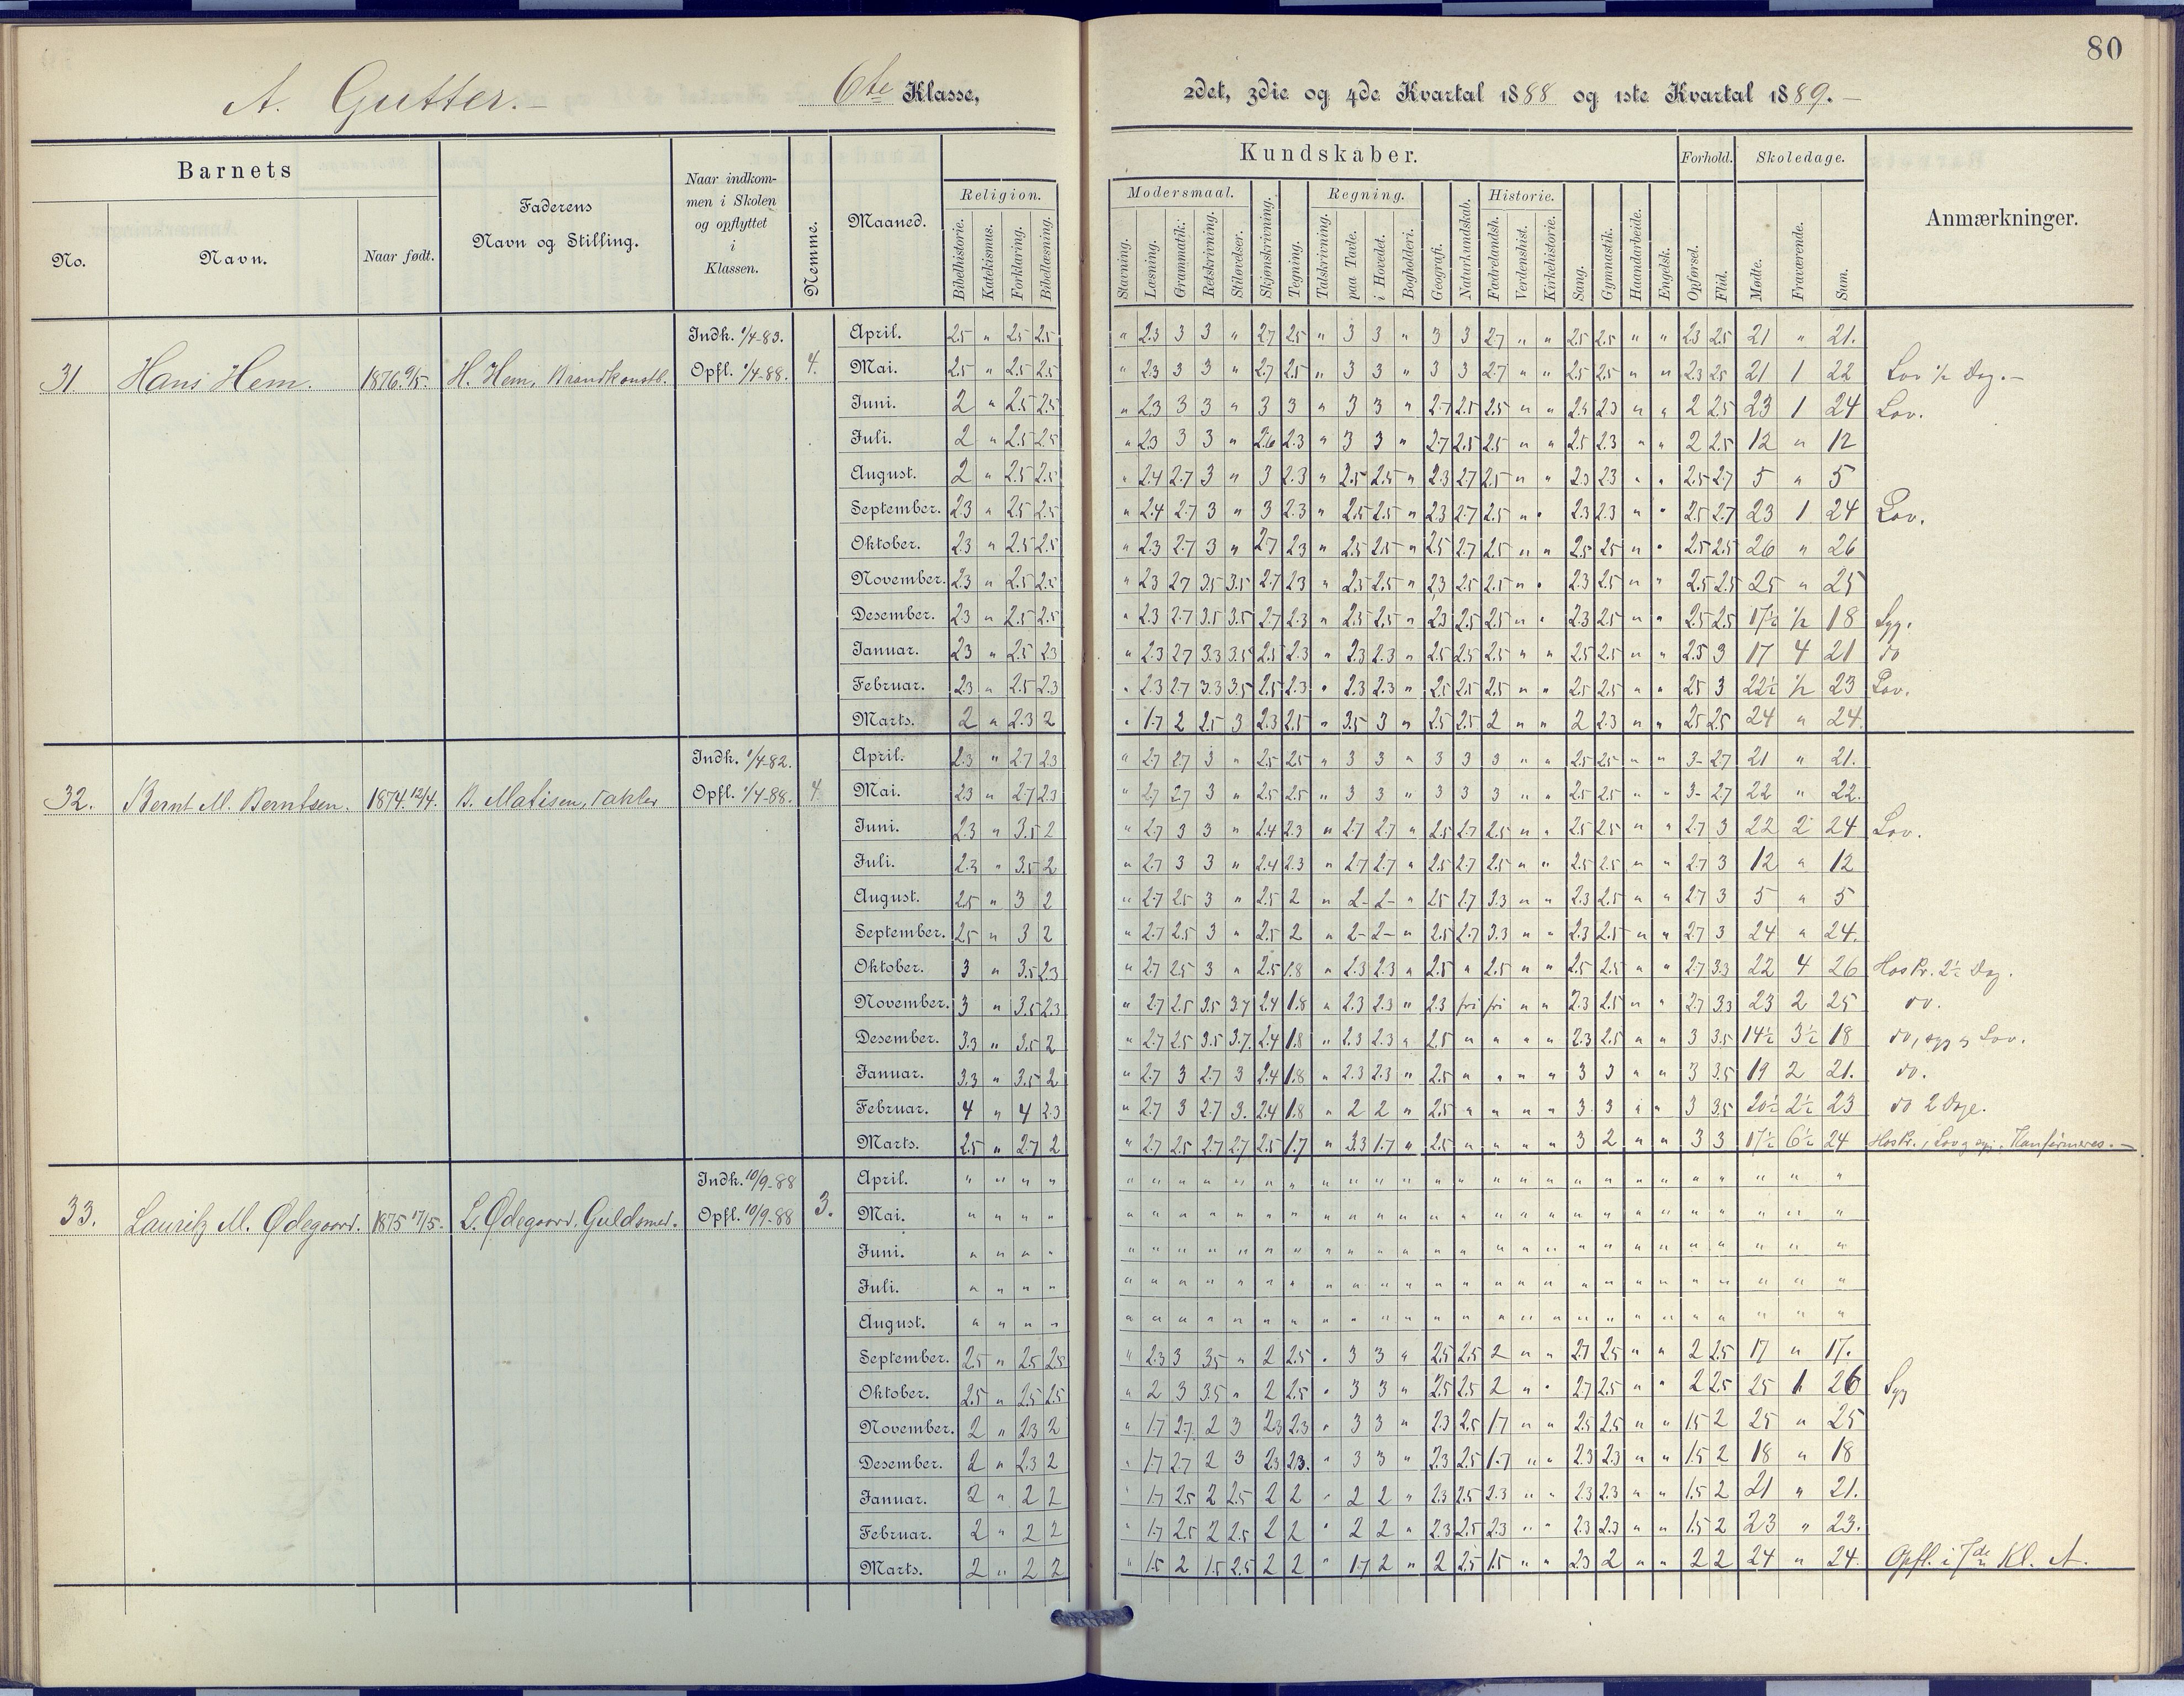 80
A. Gutter. — 6te Klasse, 2det, 3die og 4de Kvartal 1888 og 1ste Kvartal 1889. —
Barnets
No.
Navn.
Naar født.
Faderens
Navn og Stilling.
Naar indkom-
men i Skolen
og opflyttet
i
Klassen.
Nemme.
Maaned.
Kundskaber.
Religion.
Bibelhistorie.
Katekismus.
Forklaring.
Bibellæsning.
Modersmaal.
Stavning.
Læsning.
Grammatik.
Retskrivning.
Stiløvelser.
Skjønskrivning.
Tegning.
Regning.
Talskrivning.
paa Tavle.
i Hovedet.
Bogholderi.
Geografi.
Naturkundskab.
Historie.
Fædrelandsh.
Verdenshist.
Kirkehistorie.
Sang.
Gymnastik.
Haandarbeide.
Engelsk.
Forhold.
Opførsel.
Flid.
Skoledage.
Mødte.
Fraværende.
Sum.
Anmærkninger.
31. Hans Hem. H. Hem, Brandkonstb. Indk. 1/4-83. Opfl. 1/4-88. 4.
April. 2.5 " 2.5 2.5 " 2.3 3 3 " 2.7 2.5 " 3 3 " 3 3 2.7 " " 2.5 2.5 " " 2.3 2.5 21 " 21.
Mai. 2.5 " 2.5 2.5 " 2.3 3 3 " 2.7 2.5 " 3 3 " 3 3 2.7 " " 2.5 2.5 " " 2.3 2.5 21 1 22 Lov 1/2 Dag. —
Juni. 2 " 2.5 2.5 " 2.3 3 3 " 3 3 " 3 3 " 2.7 2.5 2.5 " " 2.5 2.3 " " 2 2.5 23 1 24 Lov.
Juli. 2 " 2.5 2.5 " 2.3 3 3 " 2.6 2.3 " 3 3 " 2.7 2.5 2.5 " " 2.5 2.3 " " 2 2.5 12 " 12
August. 2 " 2.5 2.5 " 2.4 2.7 3 " 3 2.3 " 2.5 2.5 " 2.3 2.7 2.5 " " 2.3 2.3 " " 2.5 2.7 5 " 5
September. 2.3 " 2.5 2.5 " 2.4 2.7 3 " 3 2.3 " 2.5 2.5 " 2.3 2.7 2.5 " " 2.3 2.3 " " 2.5 2.7 23 1 24 Lov.
Oktober. 2.3 " 2.5 2.5 " 2.3 2.7 3 " 2.7 2.3 " 2.5 2.5 " 2.5 2.7 2.5 " " 2.5 2.5 " " 2.5 2.5 26 " 26
November. 2.3 " 2.5 2.5 " 2.3 2.7 3.5 3.5 2.7 2.3 " 2.5 2.5 " 2.3 2.5 2.5 " " 2.3 2.5 " " 2.5 2.5 25 " 25
Desember. 2.3 " 2.5 2.5 " 2.3 2.7 3.5 3.5 2.7 2.3 " 2.5 2.5 " 2.3 2.5 2.5 " " 2.3 2.5 " " 2.5 2.5 17 1/2 1/2 18 Syg.
Januar. 2.3 " 2.5 2.3 " 2.3 2.7 3.3 3.5 2.5 2.3 " 2.3 2.3 " 2.5 2.5 2.5 " " 2.5 2.5 " " 2.5 3 17 4 21 do
Februar. 2.3 " 2.5 2.3 " 2.3 2.7 3.3 3.5 2.5 2.3 " 2.3 2.3 " 2.5 2.5 2.5 " " 2.5 2.5 " " 2.5 3 22 1/2 1/2 23 Lov.
Marts. 2 " 2.3 2 " 1.7 2 2.5 3 2.3 2.5 " 3.5 3 " 2.5 2.5 2 " " 2 2.3 " " 2.5 2.5 24 " 24.
32. Bernt M. Berntsen. 1874. 12/4. B. Matisen, Indk. 1/4-82. Opfl. 1/4-88. 4
April. 2.3 " 2.7 2.3 " 2.7 2.7 3 " 2.5 2.5 " 3 3 " 3 3 3 " " 2.5 2.5 " " 3- 2.7 21 " 21.
Mai. 2.3 " 2.7 2.3 " 2.7 2.7 3 " 2.5 2.5 " 3 3 " 3 3 3 " " 2.5 2.5 " " 3- 2.7 22 " 22.
Juni. 2.3 " 3.5 2 " 2.7 3 3 " 2.4 2.3 " 2.7 2.7 " 2.5 2.7 2.5 " " 2.5 2.5 " " 2.7 3 22 2 24 Lov.
Juli. 2.3 " 3.5 2 " 2.7 3 3 " 2.4 2.3 " 2.7 2.7 " 2.5 2.7 2.5 " " 2.5 2.5 " " 2.7 3 12 " 12
August. 2.5 " 3 2 " 2.7 2.5 3 " 2.5 2 " 2- 2- " 2.5 2.7 3.3 " " 2.3 2.5 " " 2.7 3 5 " 5
September. 2.5 " 3 2 " 2.7 2.5 3 " 2.5 2 " 2- 2- " 2.5 2.7 3.3 " " 2.3 2.5 " " 2.7 3 24 " 24.
Oktober. 3 " 3.5 2.3 " 2.7 2.5 3 " 2.5 1.8 " 2.3 2.3 " 2.5 " 2.5 " " 2.5 2.5 " " 2.7 3.3 22 4 26 Hos Pr. 2 1/2 Dag.
November. 3 " 3.5 2.3 " 2.7 2.5 3.5 3.7 2.4 1.8 " 2.3 2.3 " 2.3 fri fri " " 2.3 2.5 " " 2.7 3.3 23 2 25 do.
Desember. 3.3 " 3.5 2 " 2.7 2.5 3.5 3.7 2.4 1.8 " 2.3 2.3 " 2.5 " " " " 2.3 2.5 " " 3 3.5 14 1/2 3 1/2 18 do, syg og Lov.
Januar. 3.3 " 3.5 2 " 2.7 3 2.7 3 2.4 1.8 " 2.3 2.3 " 2.5 " " " " 3 3 " " 3 3.5 19 2 21. do.
Februar. 4 " 4 2.3 " 2.7 3 2.7 3. 2.4 1.8 " 2 2 " 2.5 " " " " 3 3 " " 3 3.5 20 1/2 2 1/2 23 do 2 Dage.
Marts. 2.5 " 2.7 2 " 2.7 2.5 2.7 2.7 2.5 1.7 " 3.3 1.7 " 2.5 " " " " 3 2 " " 3 3 17 1/2 6 1/2 24 Hos Pr., Lov og syg. Konfirmeres. —
33. Lauritz M. Ødegaard. 1875 17/5. L. Ødegaard, Guldsmed. Indk. 10/9-88 Opfl. 10/9-88 3.
April. " " " " " " " " " " " " " " " " " " " " " " " " " " " " "
Mai. " " " " " " " " " " " " " " " " " " " " " " " " " " " " "
Juni. " " " " " " " " " " " " " " " " " " " " " " " " " " " " "
Juli. " " " " " " " " " " " " " " " " " " " " " " " " " " " " "
August. " " " " " " " " " " " " " " " " " " " " " " " " " " " " "
September. 2.5 " 2.5 2.5 " 2.3 3 3.5 " 2 2.5 " 3 3 " 2.5 2.5 2 " " 2.7 2.5 " " 2 2.5 17 " 17.
Oktober. 2.5 " 2.5 2.5 " 2 3 3.5 " 2 2.5 " 3 3 " 2.5 2.5 2 " " 2.7 2.5 " " 2 2.5 25 1 26 Syg
November. 2 " 2.3 2 " 1.7 2.7 2 3 2.3 2.3 " 3 3 " 2.3 2.5 1.7 " " 2.5 2.5 " " 1.5 2 25 " 25
Desember. 2 " 2.3 2 " 1.7 2.7 2 3 2.3 2.3. " 3 3 " 2.3 2.5 1.7 " " 2.3 2.3 " " 1.5 2 18 " 18
Januar. 2 " 2 2 " 1.7 2.5 2 2.5 2 2 " 2 2 " 2.3 2.5 2.3 " " 2.3 2.3 " " 1.5 2 21 " 21.
Februar. 2 " 2 2 " 1.7 2.5 2 2.5 2 2 " 2 2 " 2.3 2.5 2.3 " " 2.3 2.3 " " 1.5 2 23 " 23.
Marts. 2 " 2 2 " 1.5 2 1.5 2.5 2 2 " 1.7 2 " 2 2.5 1.5 " " 2.3 2 " " 2 2 24 " 24. Opfl. i 7de Kl. A.